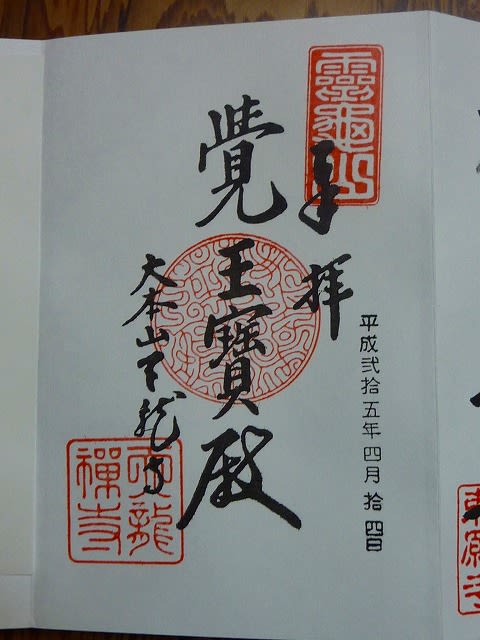 平成弐拾五年四月拾四日
靈龜山
奉拝
覺王寶殿
大本山天龍寺
天龍
禪寺